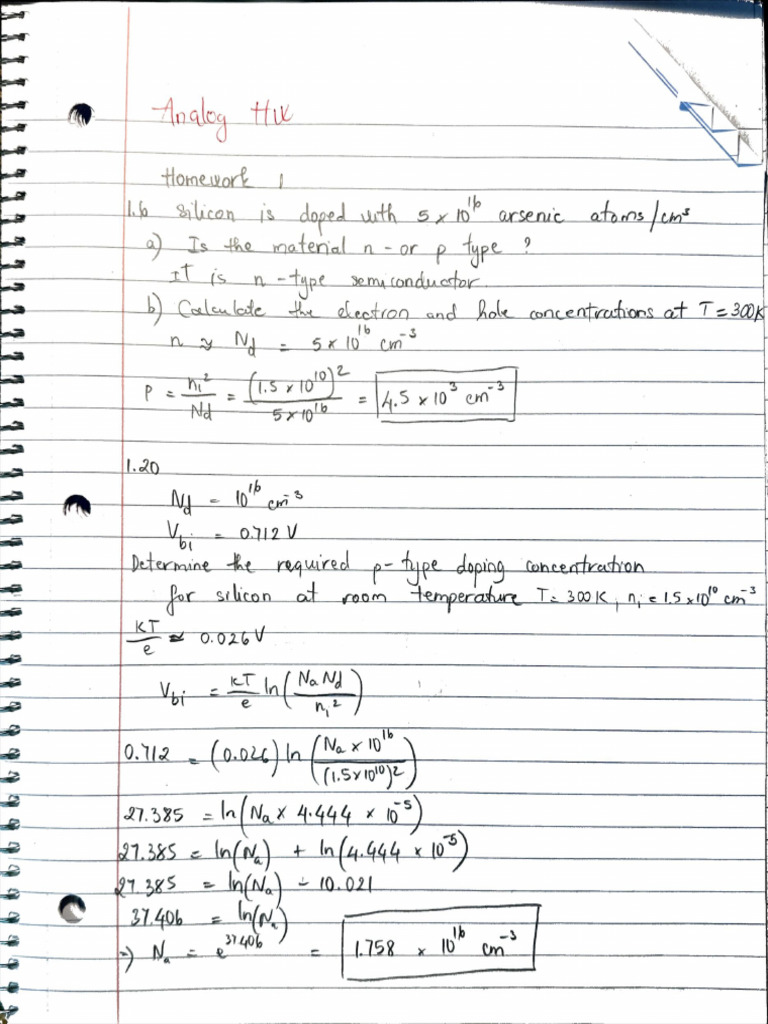 Analog HW
Homework 1
1.6 silicon is doped with 5 × 10^16 arsenic atoms/cm^3
a) Is the material n - or p type ?
It is n - type semiconductor.
b) Calculate the electron and hole concentrations at T = 300K
n ≈ Nd = 5 × 10^16 cm^-3
P = ni^2/Nd = (1.5 × 10^10)^2/5 × 10^16 = 4.5 × 10^3 cm^-3
1.20
Nd = 10^16 cm^-3
Vbi = 0.712 V
Determine the required p - type doping concentration
for silicon at room temperature T = 300K, ni = 1.5 × 10^10 cm^-3
KT/e ≈ 0.026 V
Vbi = KT/e ln(Na Nd/ni^2)
0.712 = (0.026) ln(Na × 10^16/(1.5 × 10^10)^2)
27.385 = ln(Na × 4.444 × 10^-5)
27.385 = ln(Na) + ln(4.444 × 10^-5)
27.385 = ln(Na) - 10.021
37.406 = ln(Na)
⇒ Na = e^37.406 = 1.758 × 10^16 cm^-3